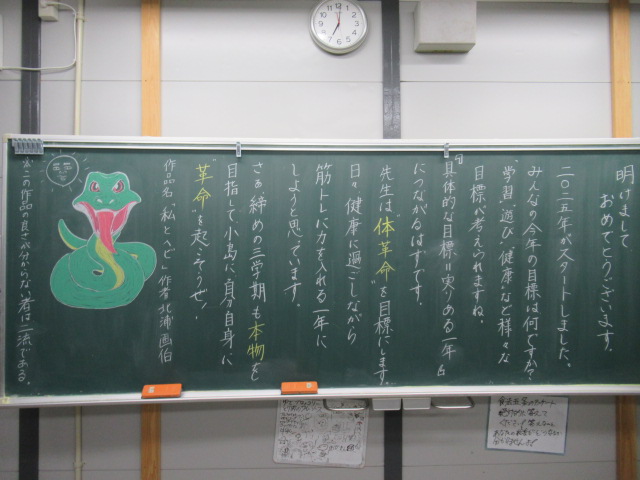 明けまして
おめでとうございます。
二〇二五年がスタートしました。
みんなの今年の目標は何ですか？
"学習""遊び""健康"など様々な
目標が考えられますね。
『具体的な目標＝実りある一年』
につながるはずです。
先生は"体革命"を目標にします。
日々健康に過ごしながら
筋トレに力を入れる一年に
しようと思っています。
さぁ締めの三学期も本物を
目指して小島に、自分自身に
"革命"を起こそうぜ！
作品名「私とへび」作者北浦画伯
※この作品の良さが分からない者は二流である。